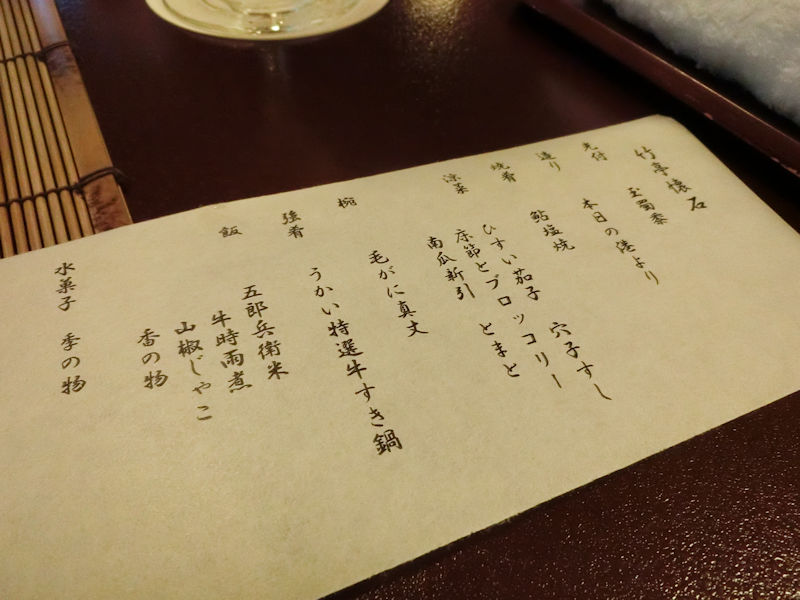 竹亭懐石
先付 玉蜀黍
造り 本日の港より
焼肴 鮎塩焼 穴子すし
涼菜 ひすい茄子
床節とブロッコリー
南瓜新引 とまと
椀 毛がに真丈
強肴 うかい特選牛すき鍋
飯 五郎兵衛米
牛時雨煮
山椒じゃこ
香の物
水菓子 季の物